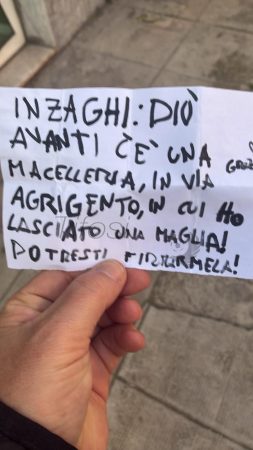 INZAGHI: DIÒ
AVANTI C'È UNA
MACELLERIA, IN VIA
AGRIGENTO, IN CUI HO
LASCIATO UNA MAGLIA!
POTRESTI FIRMARMELA!